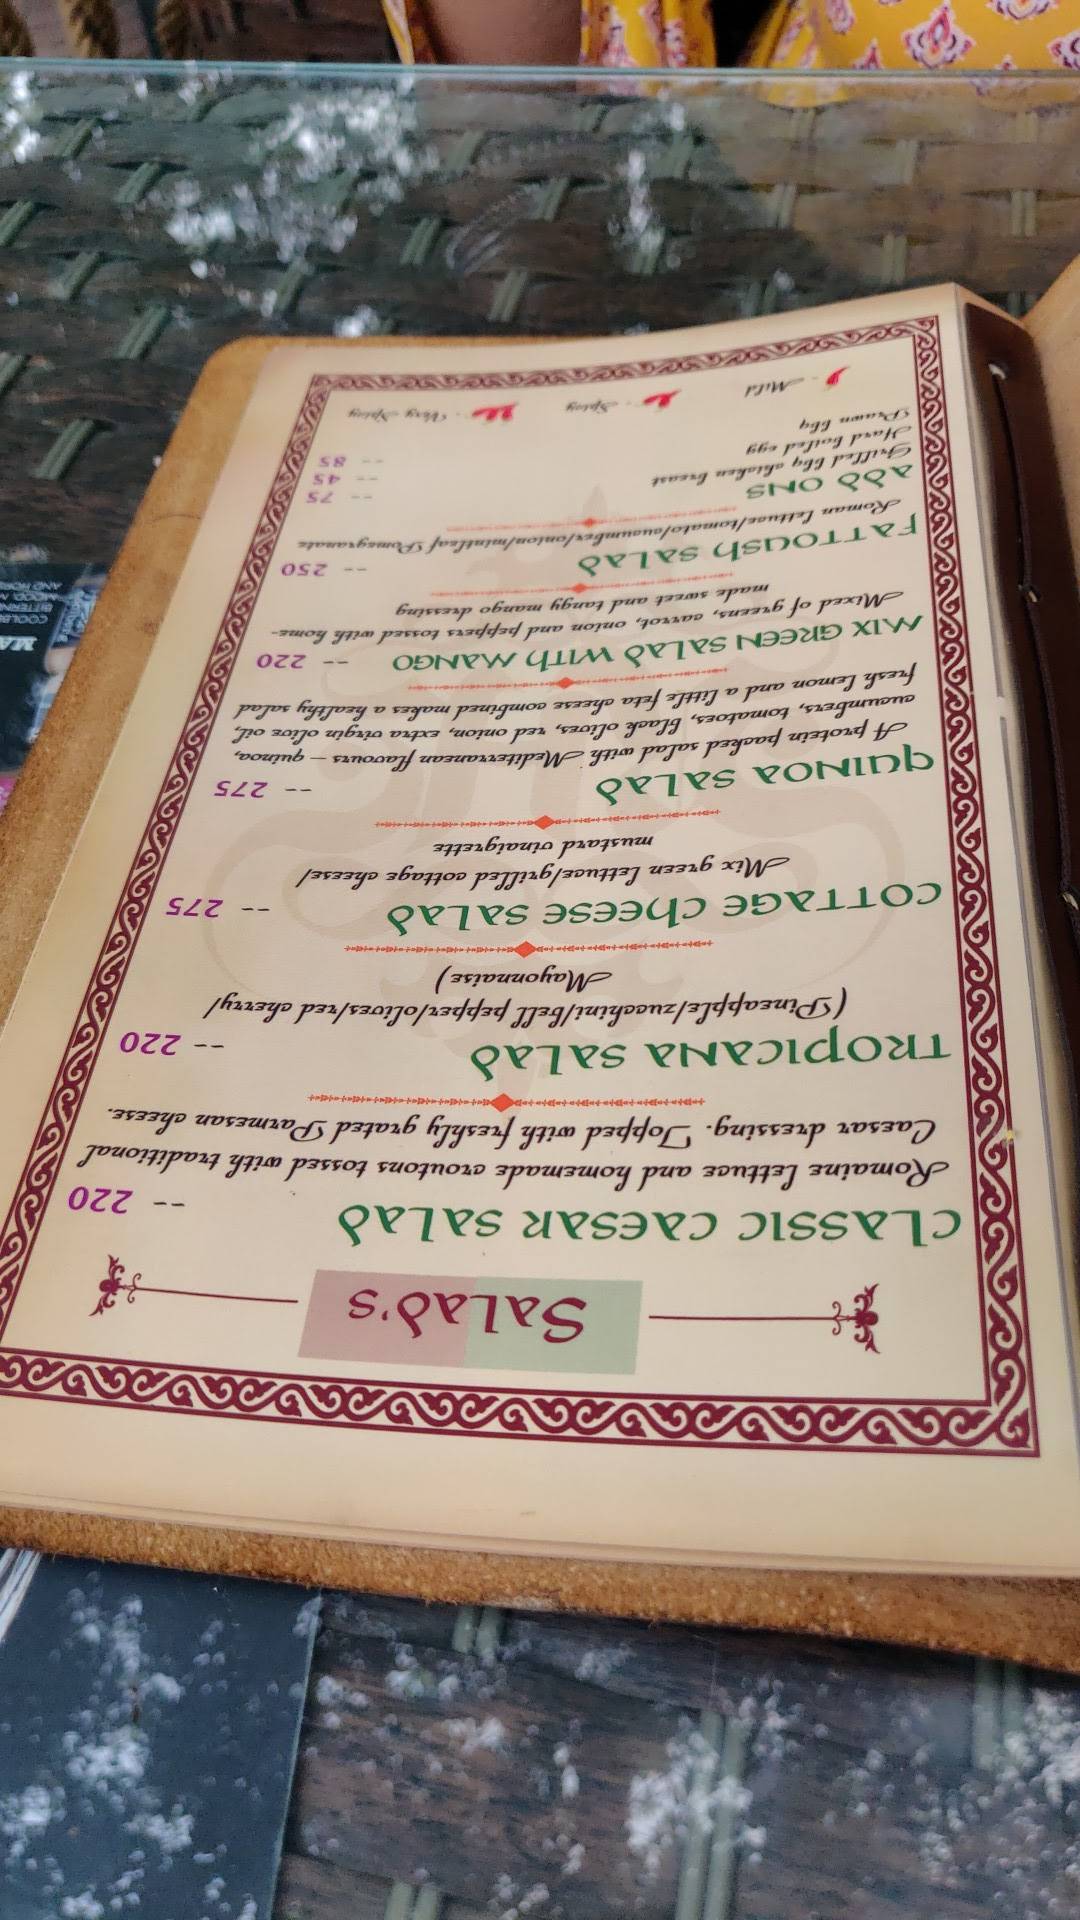 Salad's
CLASSIC CAESAR SALAD -- 220
Romaine lettuce and homemade croutons tossed with traditional
Caesar dressing. Topped with freshly grated Parmesan cheese.
TROPICANA SALAD -- 220
(Pineapple/zucchini/bell pepper/olives/red cherry/
Mayonnaise)
COTTAGE CHEESE SALAD -- 275
Mix green lettuce/grilled cottage cheese/
mustard vinaigrette
QUINOA SALAD -- 275
A protein packed salad with Mediterranean flavours – quinoa,
cucumbers, tomatoes, black olives, red onion, extra virgin olive oil,
fresh lemon and a little feta cheese combined makes a healthy salad
MIX GREEN SALAD WITH MANGO -- 220
Mixed of greens, carrot, onion and peppers tossed with home-
made sweet and tangy mango dressing
FATTOUSH SALAD -- 250
Roman lettuce/tomato/cucumber/onion/mintleaf Pomegranate
ADD ONS
Grilled bbq chicken breast -- 75
Hard boiled egg -- 45
Prawn bbq -- 85
- Mild - Spicy - Very Spicy